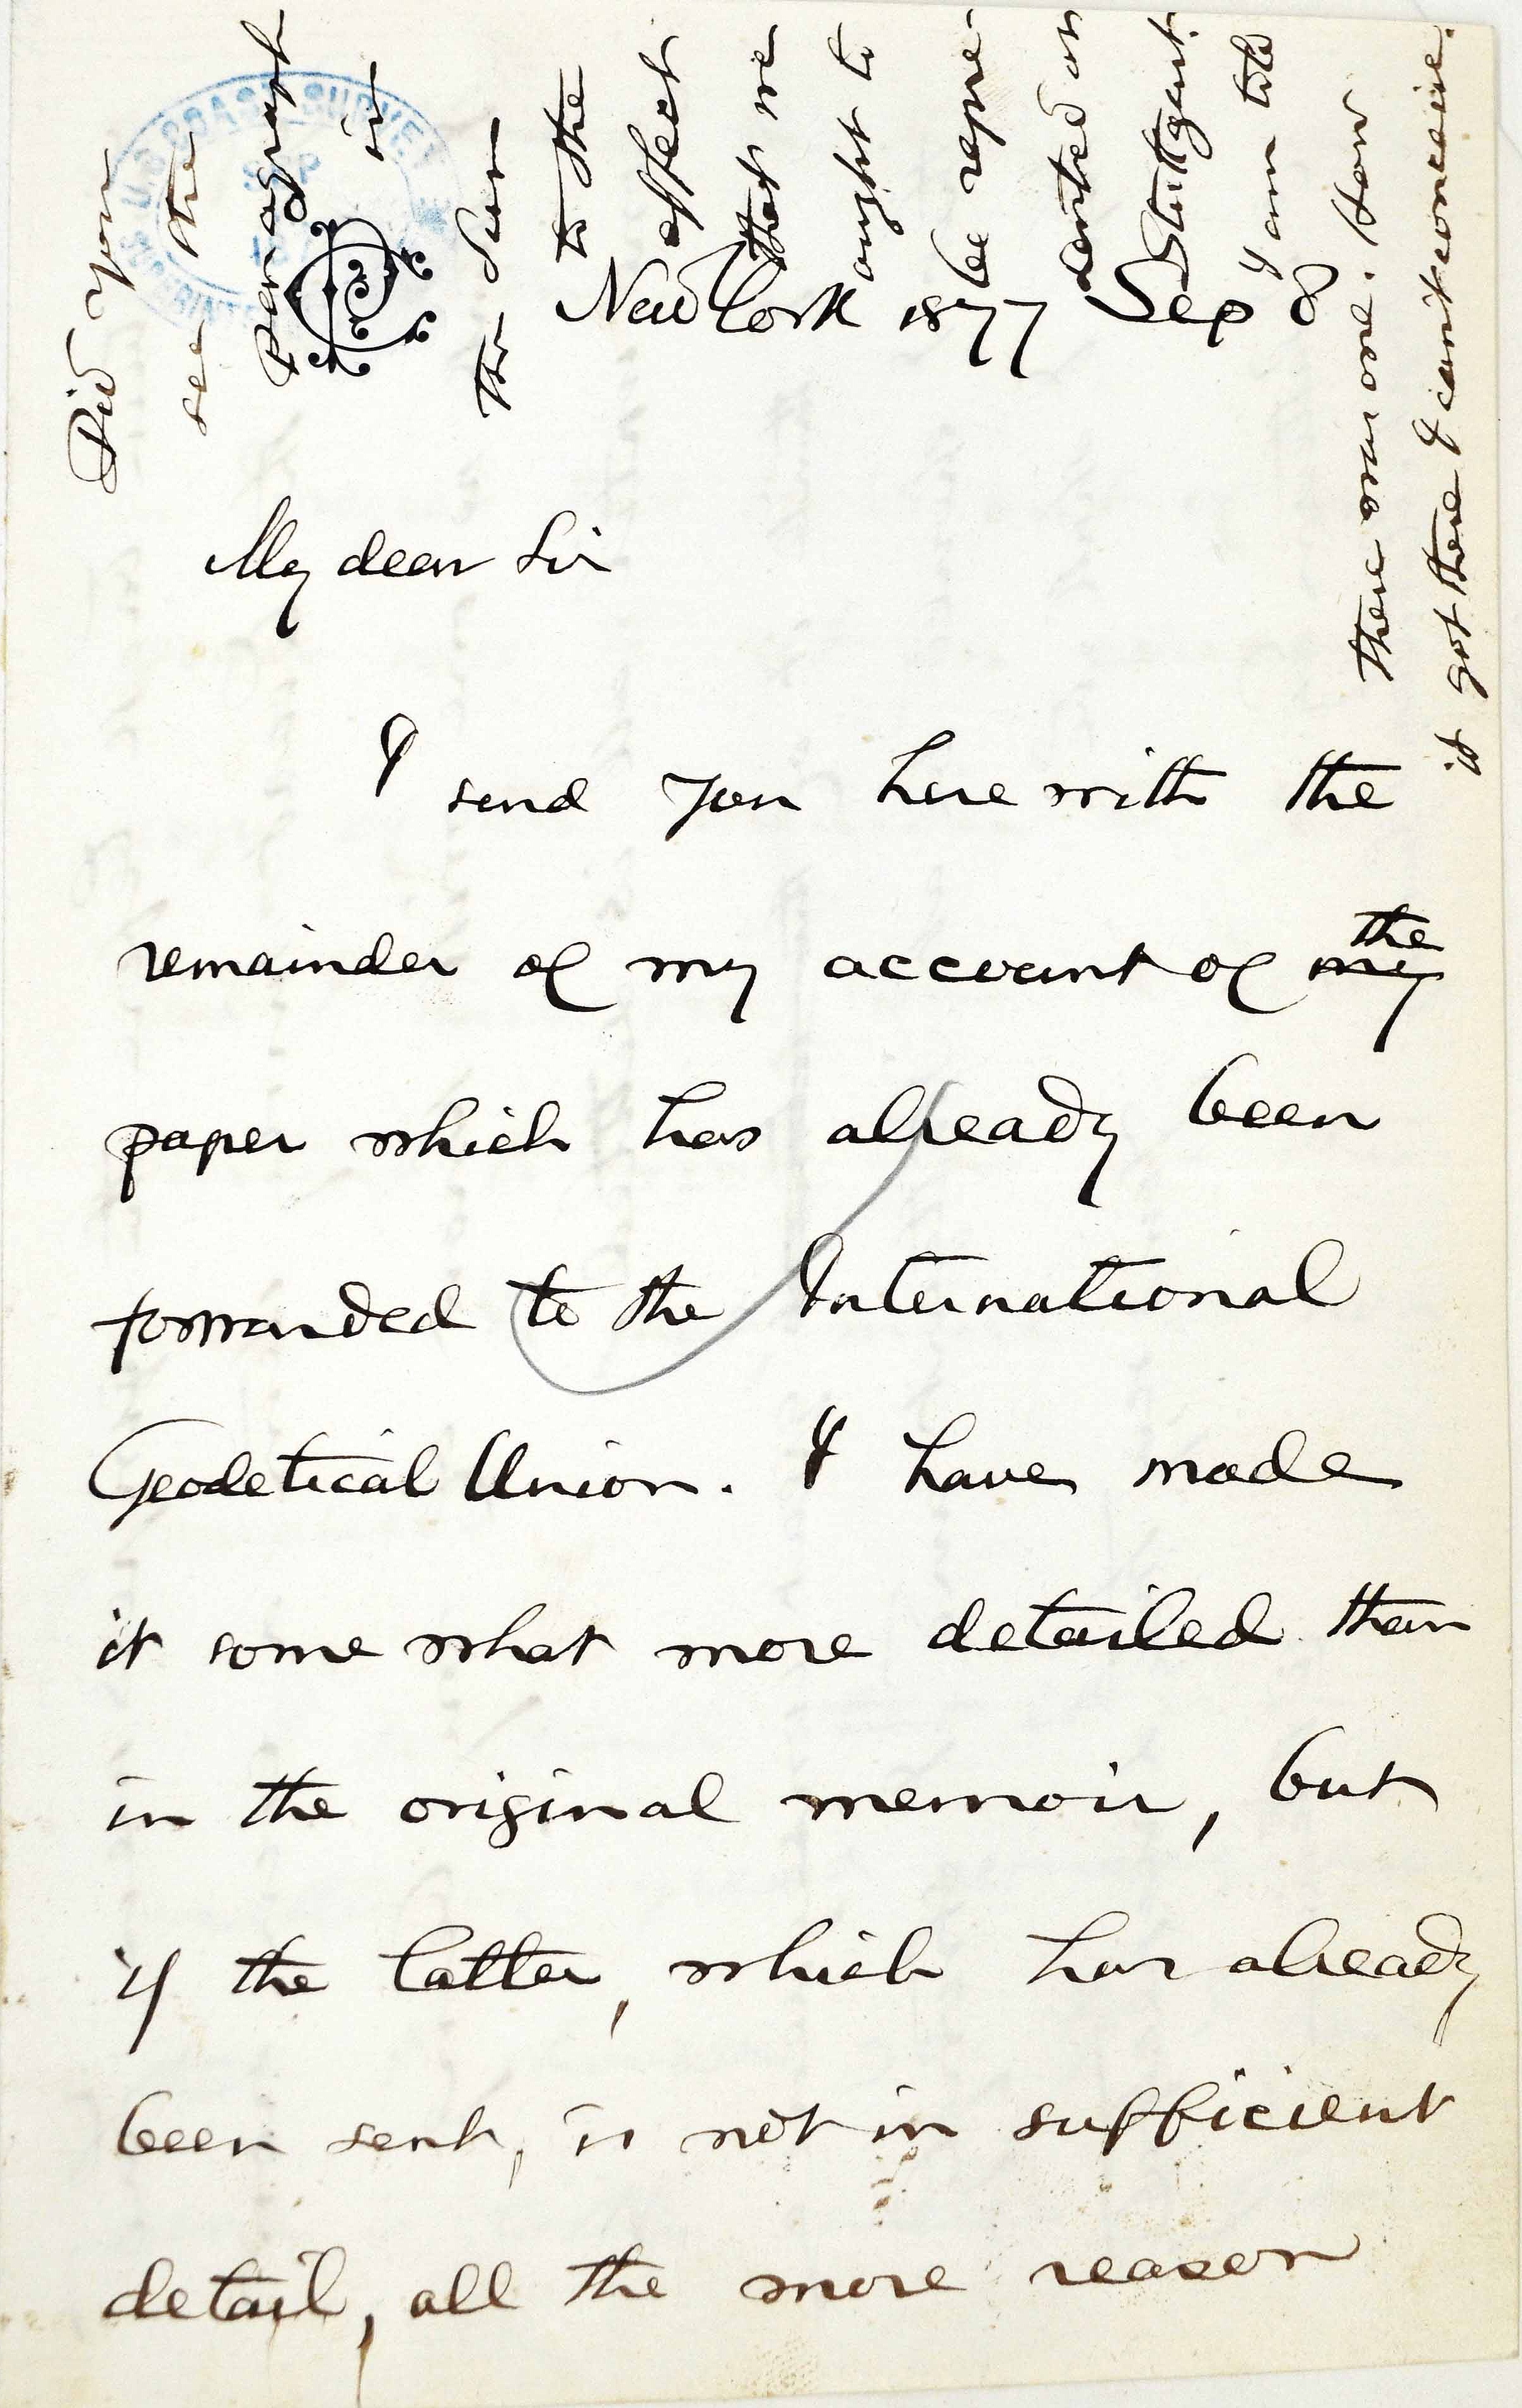 New York 1877 Sep 8
My dear Sir
I send you herewith the
remainder of my account of ~~my~~ the
paper which has already been
forwarded to the International
Geodetical Union. I have made
it somewhat more detailed than
in the original memoir, but
if the latter, which has already
been sent, is not in sufficient
detail, all the more reason
Did you
see the
paragraph
in
the Sun
to the
effect
that we
ought to
be repre-
sented at
Stuttgart.
I am told
there was one. How
it got there I can't conceive.
U.S. COAST SURVEY